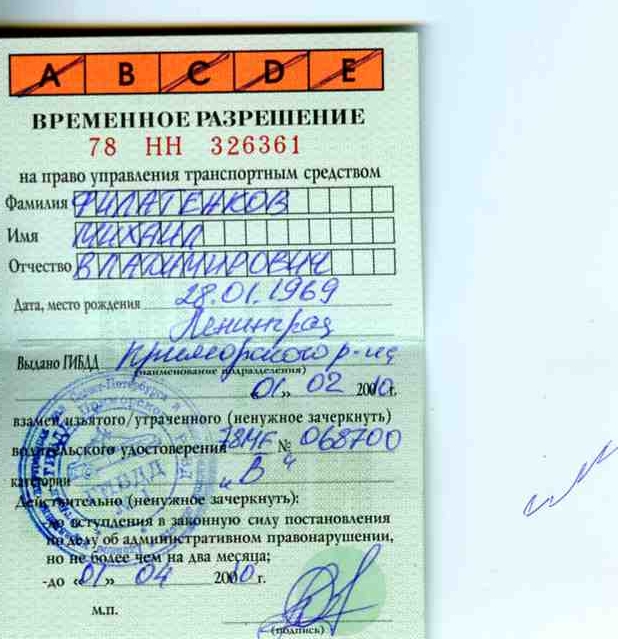 A B C D E
ВРЕМЕННОЕ РАЗРЕШЕНИЕ
78 НН 326361
на право управления транспортным средством
Фамилия ФИЛАТЕНКОВ
Имя МИХАИЛ
Отчество ВЛАДИМИРОВИЧ
Дата, место рождения 28.01.1969
Ленинград
Выдано ГИБДД Приморского р-на
(наименование подразделения)
«01» 02 2010г.
взамен изъятого/утраченного (ненужное зачеркнуть)
водительского удостоверения 78МЕ № 068700
категории "В"
Действительно (ненужное зачеркнуть):
-до вступления в законную силу постановления
по делу об административном правонарушении,
но не более чем на два месяца;
-до «01» 04 2010 г.
м.п.
(подпись)